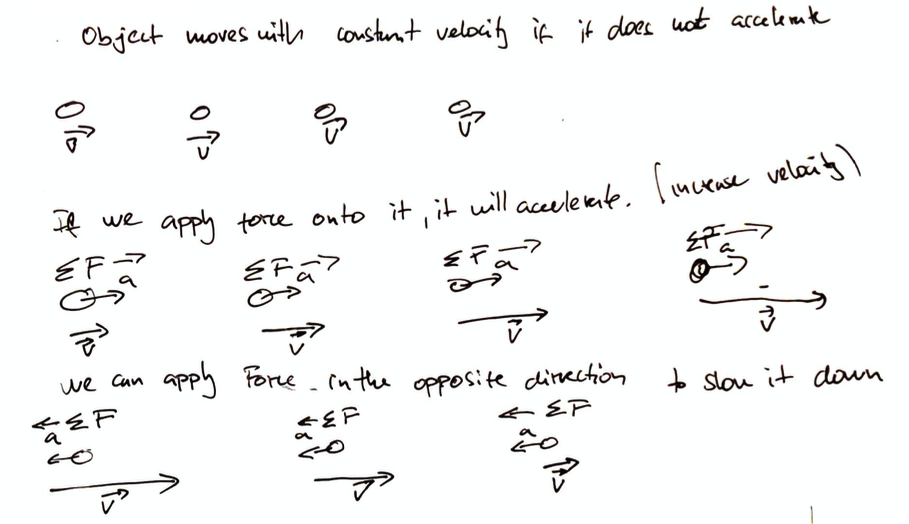 Object moves with constant velocity if it does not accelerate
v v v v
If we apply force onto it, it will accelerate. (increase velocity)
ΣF ΣF ΣF ΣF
a a a a
v v v v
we can apply Force in the opposite dirrection to slow it down
ΣF ΣF ΣF
a a a
v v v